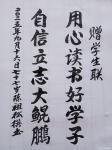 赠学生联
用心读书好学子
自信立志大鲲鹏
二〇二三年九月十六日七十七岁陈祖松撰书